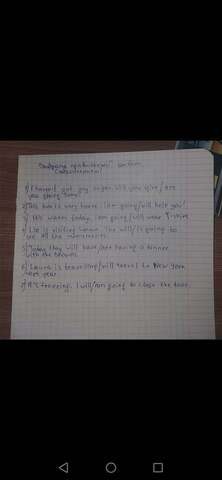 1) I haven't got any sugar. Will you give / are
you giving some?
2) This box is very heavy. I am going / will help you!
3) It's warm today. I am going / will wear T-shirt
4) Liz is visiting London. She will / is going to
see all the monuments.
5) Today they will have / are having a dinner
with the Browns
6) Laura is travelling / will travel to New York
next year
7) It's freezing. I will / am going to close the door.